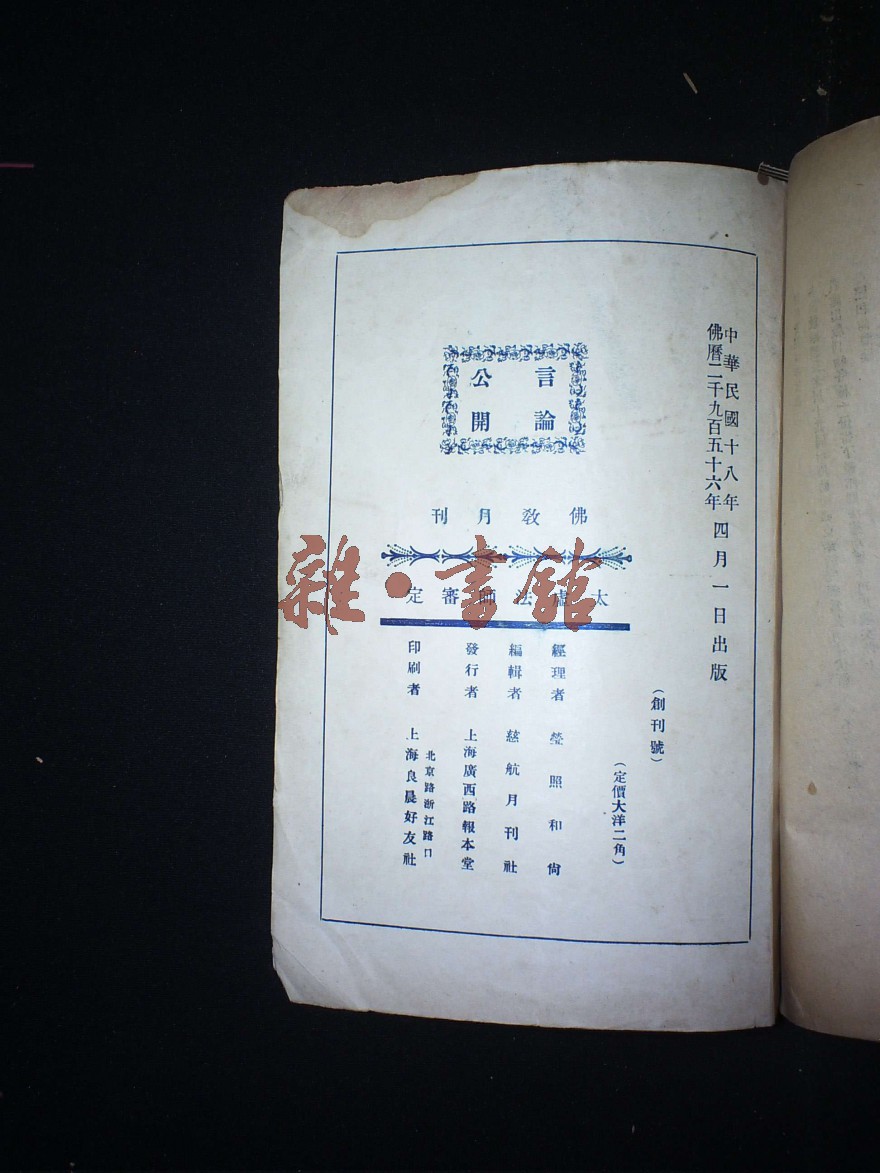 中華民國十八年
佛曆二千九百五十六年
四月一日出版
(創刊號)
(定價大洋二角)
言論
公開
佛教月刊
太虛法師審定
經理者 瑩照和尙
編輯者 慈航月刊社
發行者 上海廣西路報本堂
印刷者 北京路浙江路口
上海良晨好友社
雜·書館